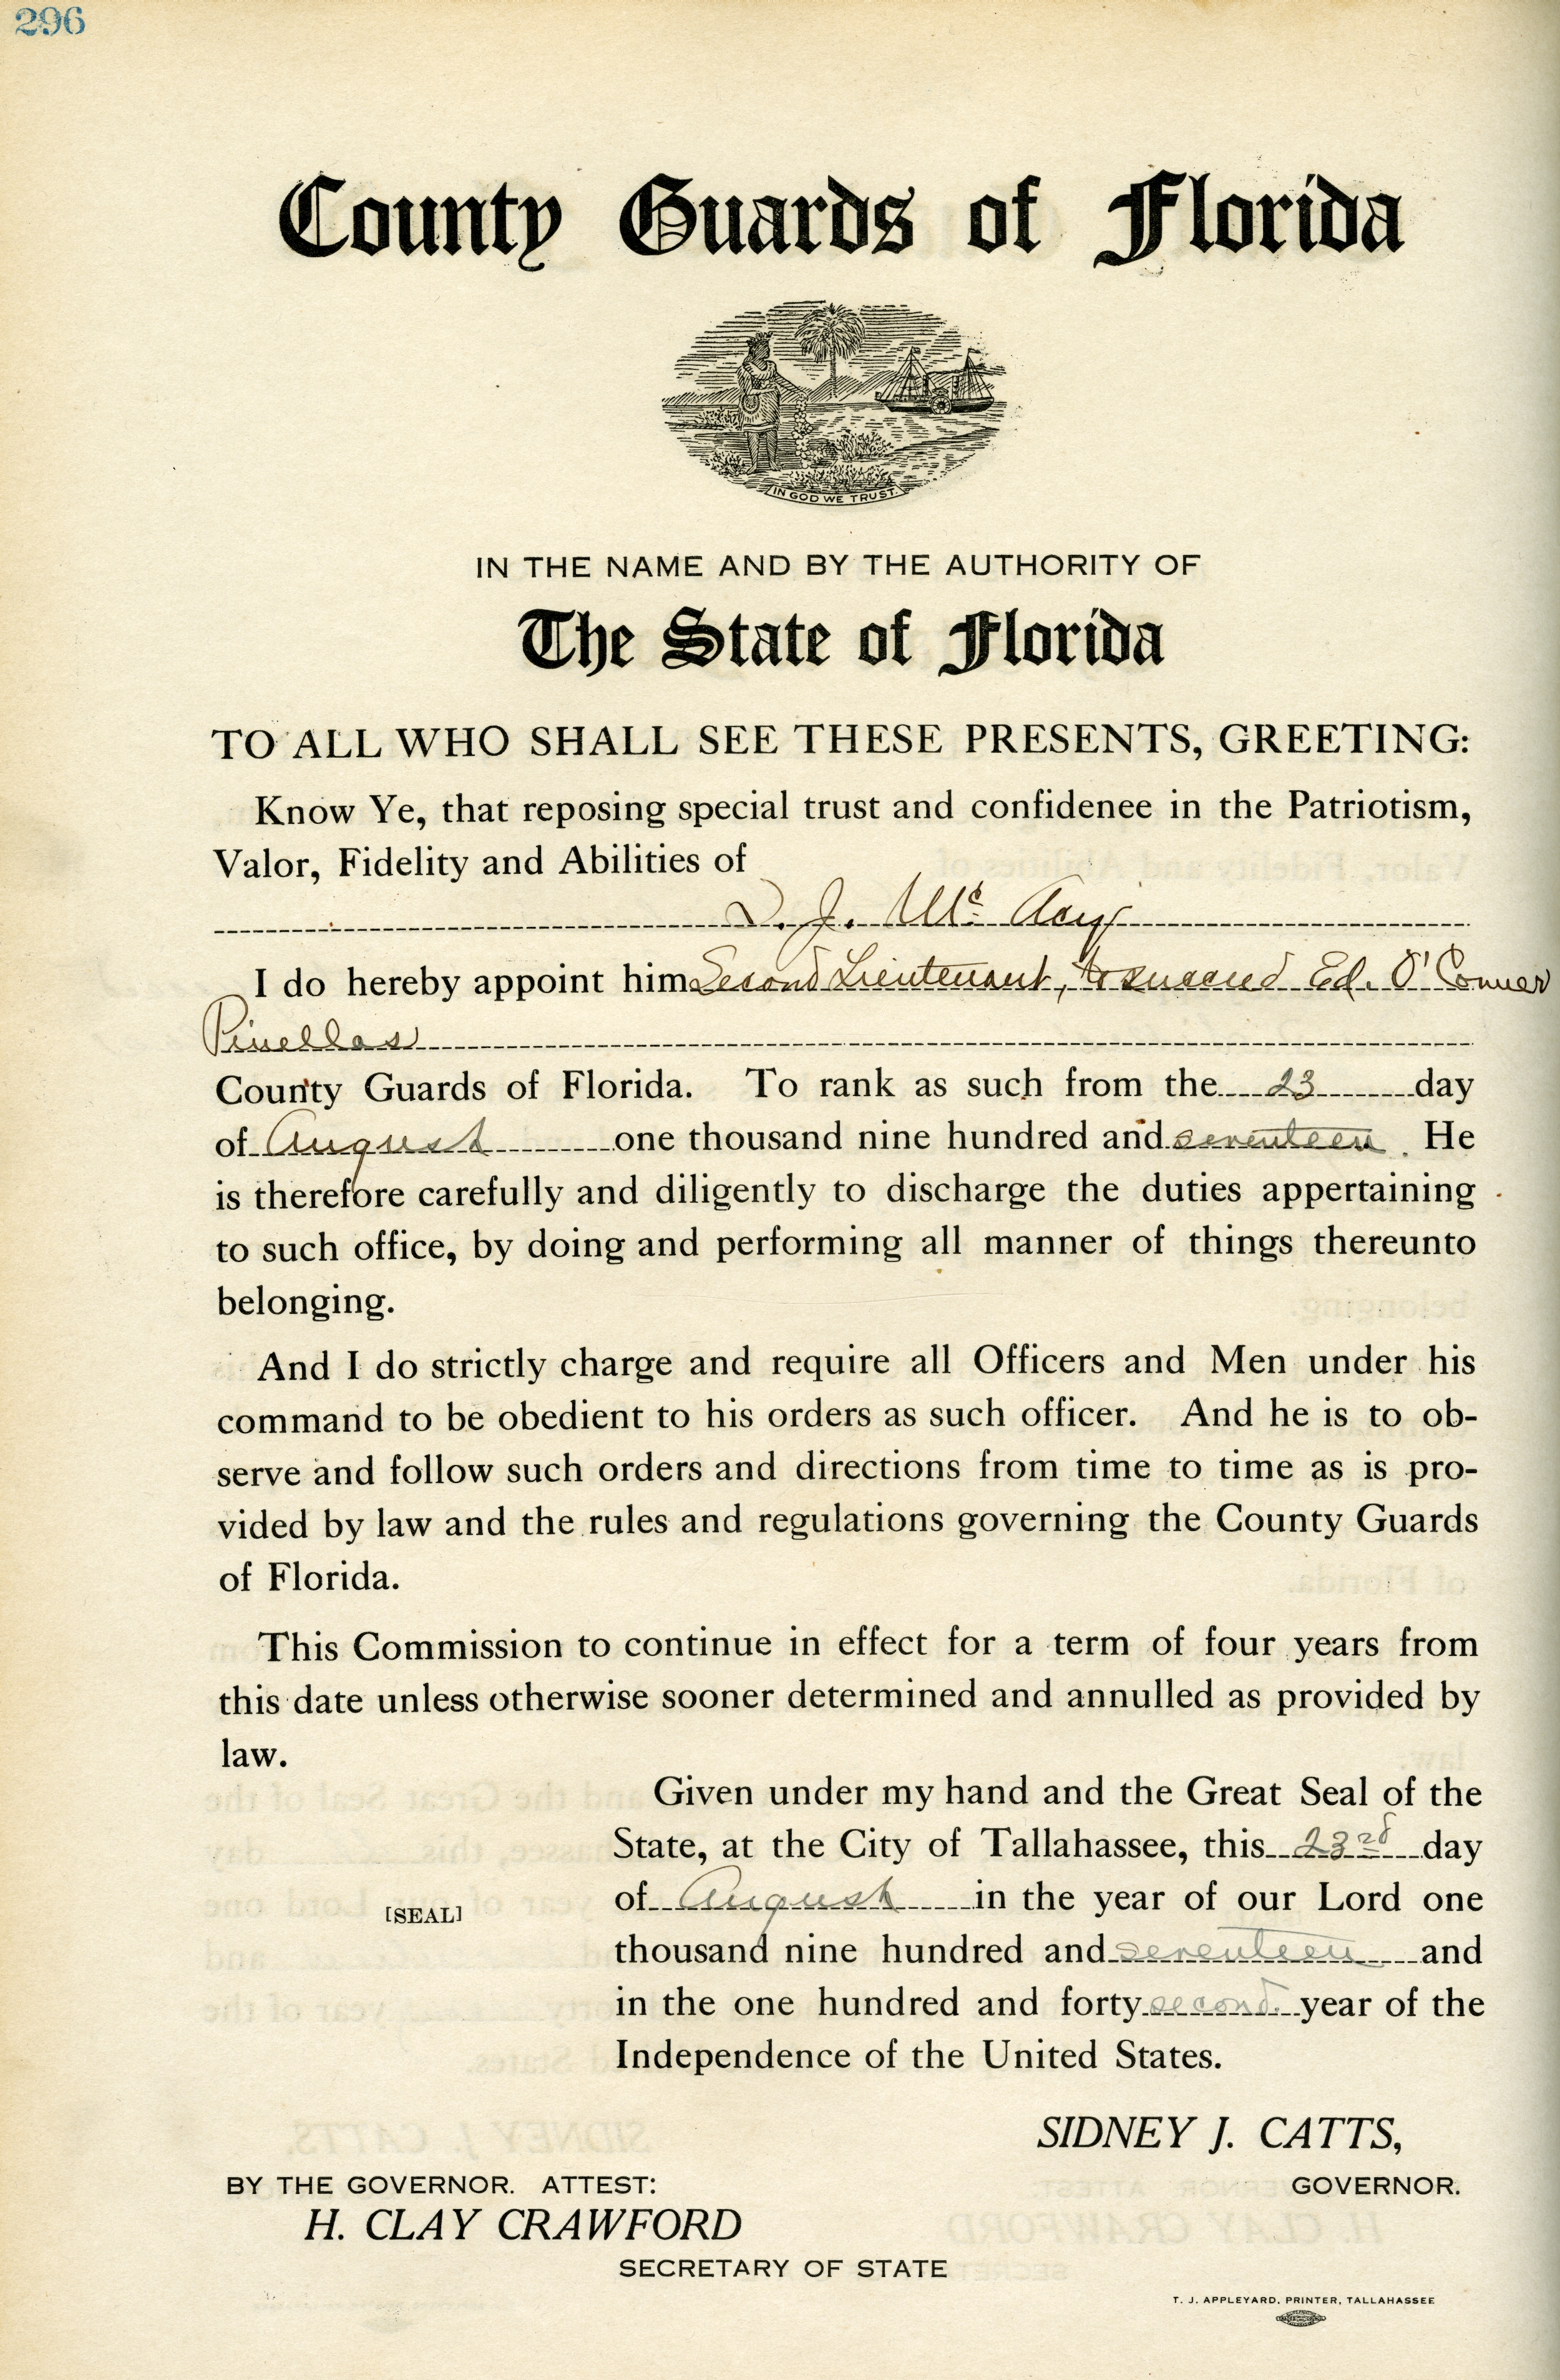 296
County Guards of Florida
IN GOD WE TRUST.
IN THE NAME AND BY THE AUTHORITY OF
The State of Florida
TO ALL WHO SHALL SEE THESE PRESENTS, GREETING:
Know Ye, that reposing special trust and confidenee in the Patriotism,
Valor, Fidelity and Abilities of
J. Mc
I do hereby appoint him Second Lieutenant, to succeed Ed. O'Conner
Pinellas
County Guards of Florida. To rank as such from the 23 day
of August one thousand nine hundred and seventeen. He
is therefore carefully and diligently to discharge the duties appertaining
to such office, by doing and performing all manner of things thereunto
belonging.
And I do strictly charge and require all Officers and Men under his
command to be obedient to his orders as such officer. And he is to ob-
serve and follow such orders and directions from time to time as is pro-
vided by law and the rules and regulations governing the County Guards
of Florida.
This Commission to continue in effect for a term of four years from
this date unless otherwise sooner determined and annulled as provided by
law.
Given under my hand and the Great Seal of the
State, at the City of Tallahassee, this 23rd day
of August in the year of our Lord one
[SEAL]
thousand nine hundred and seventeen and
in the one hundred and forty second year of the
Independence of the United States.
SIDNEY J. CATTS,
BY THE GOVERNOR. ATTEST: GOVERNOR.
H. CLAY CRAWFORD
SECRETARY OF STATE
T. J. APPLEYARD, PRINTER, TALLAHASSEE